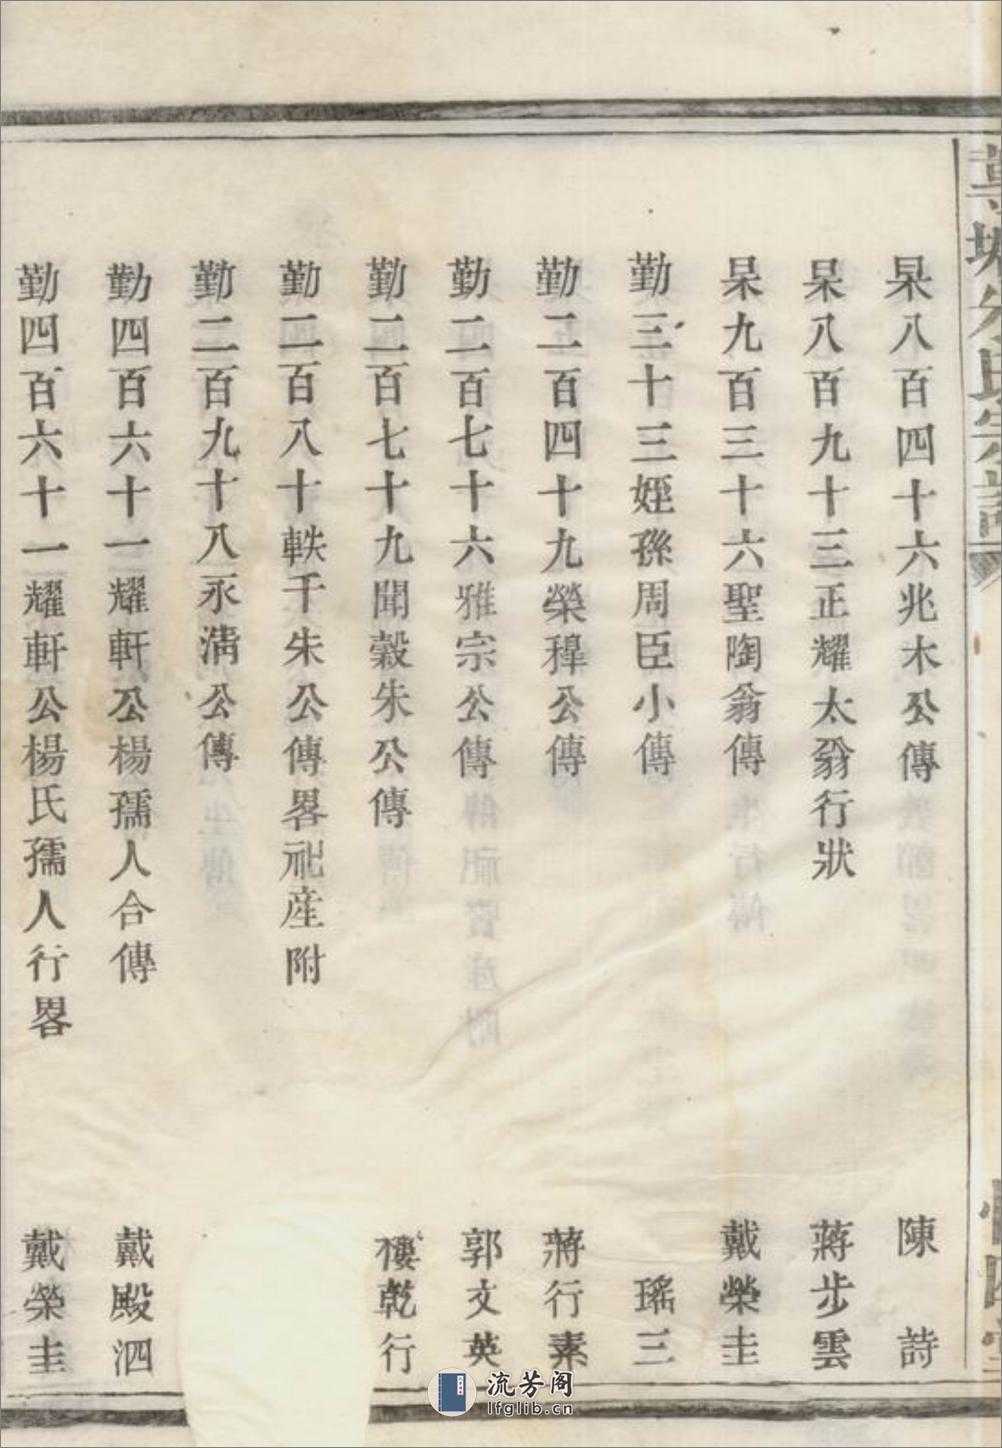 朱氏宗譜
杲八百四十六兆木公傳 陳詩
杲八百九十三正耀太翁行狀 蔣步雲
杲九百三十六聖陶翁傳 戴榮圭
勤三十三姪孫周臣小傳 瑤三
勤二百四十九榮稺公傳 蔣行素
勤二百七十六雅宗公傳 郭文英
勤二百七十九聞穀朱公傳 樓乾行
勤二百八十軼千朱公傳畧祀産附
勤二百九十八永淸公傳
勤四百六十一耀軒公楊孺人合傳 戴殿泗
勤四百六十一耀軒公楊氏孺人行畧 戴榮圭
流芳阁
lfglib.cn